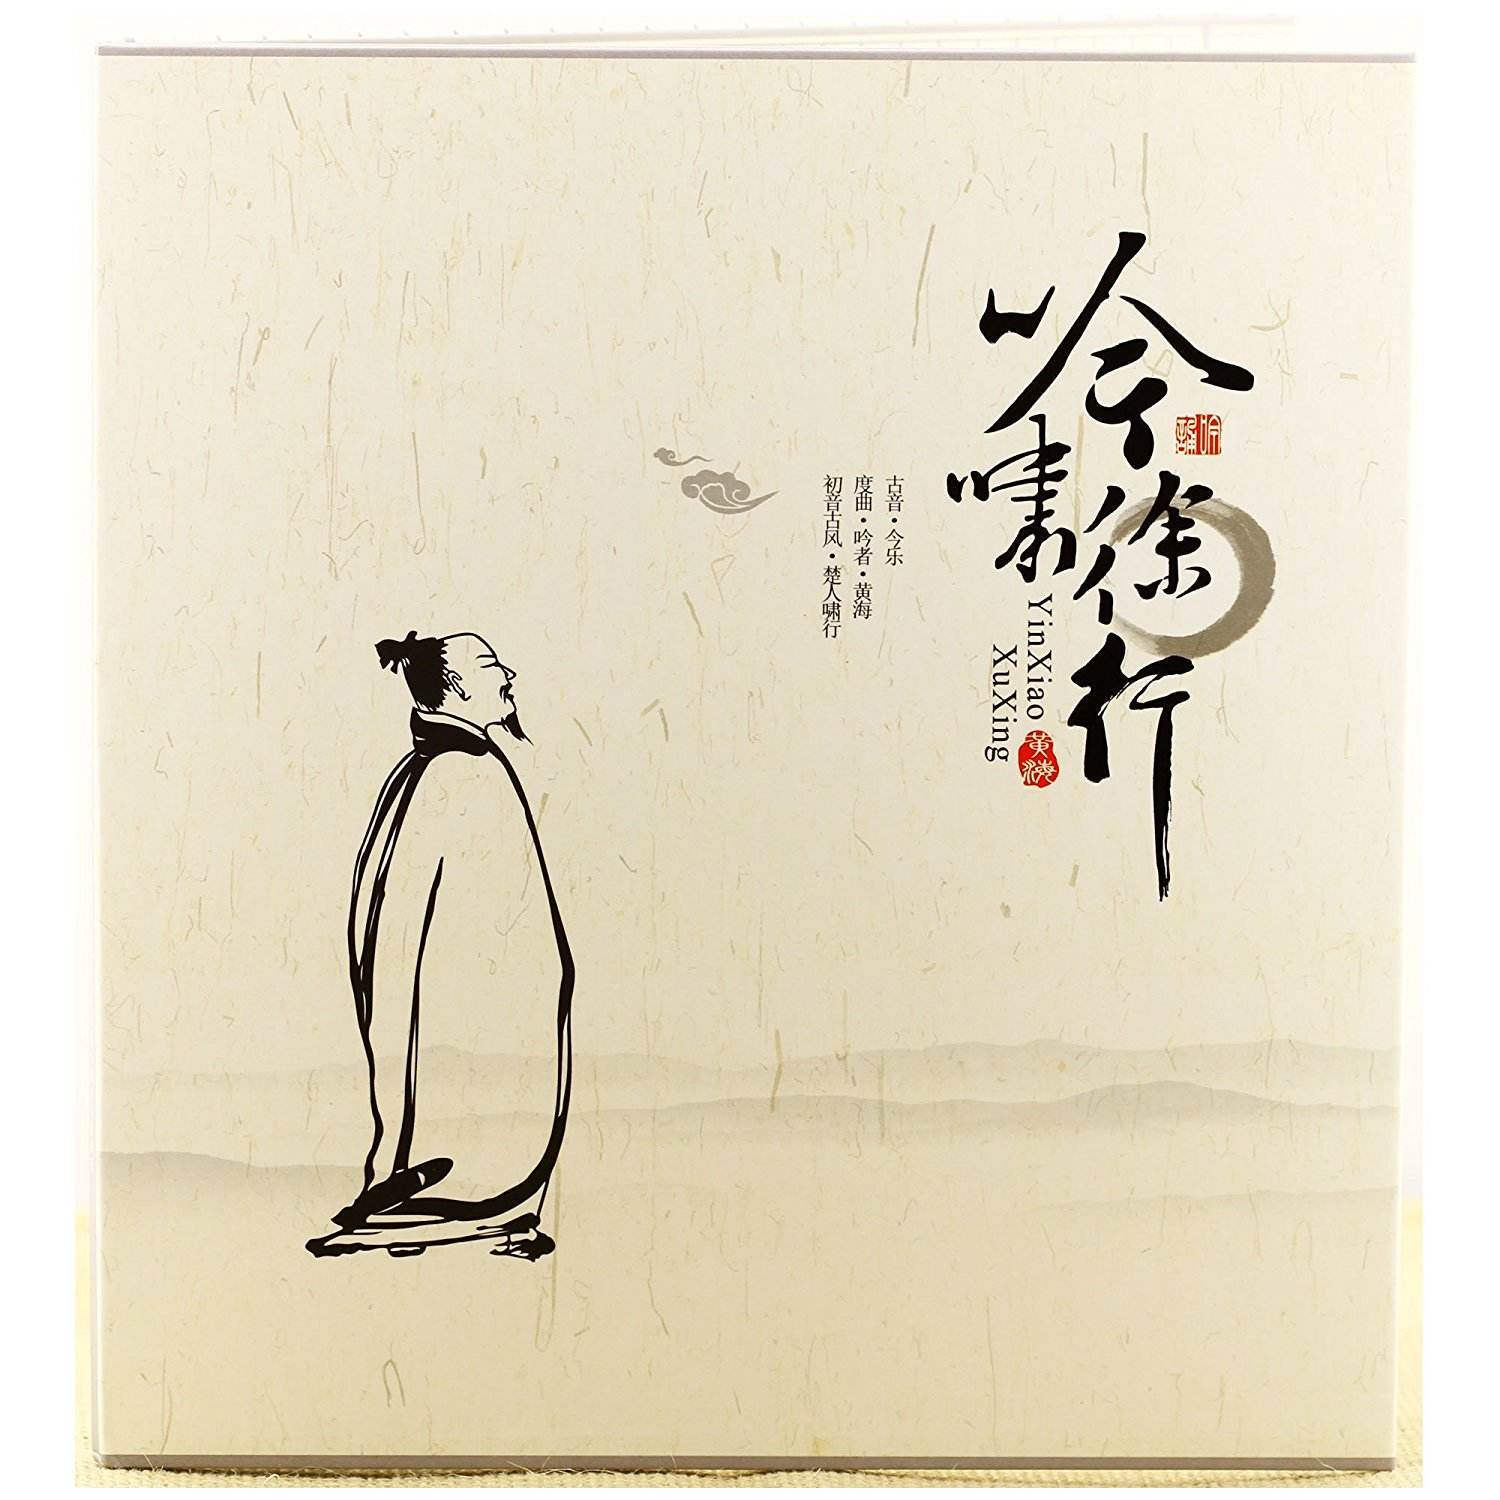 吟啸徐行
吟誦
YinXiao
XuXing
黄海
古音·今乐
度曲·吟者·黄海
初音古风·楚人啸行